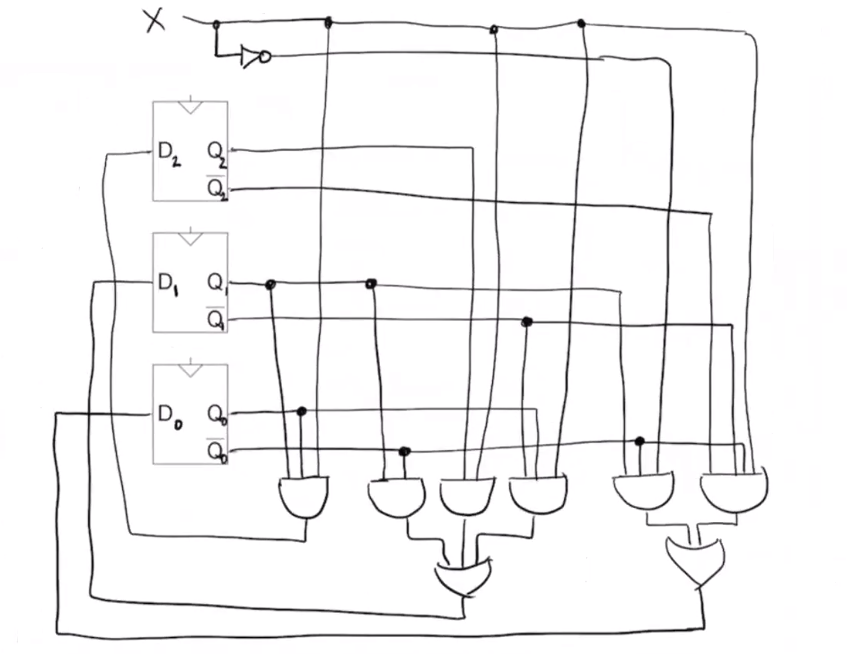 X
D₂ Q₂
Q̅₂
D₁ Q₁
Q̅₁
D₀ Q₀
Q̅₀